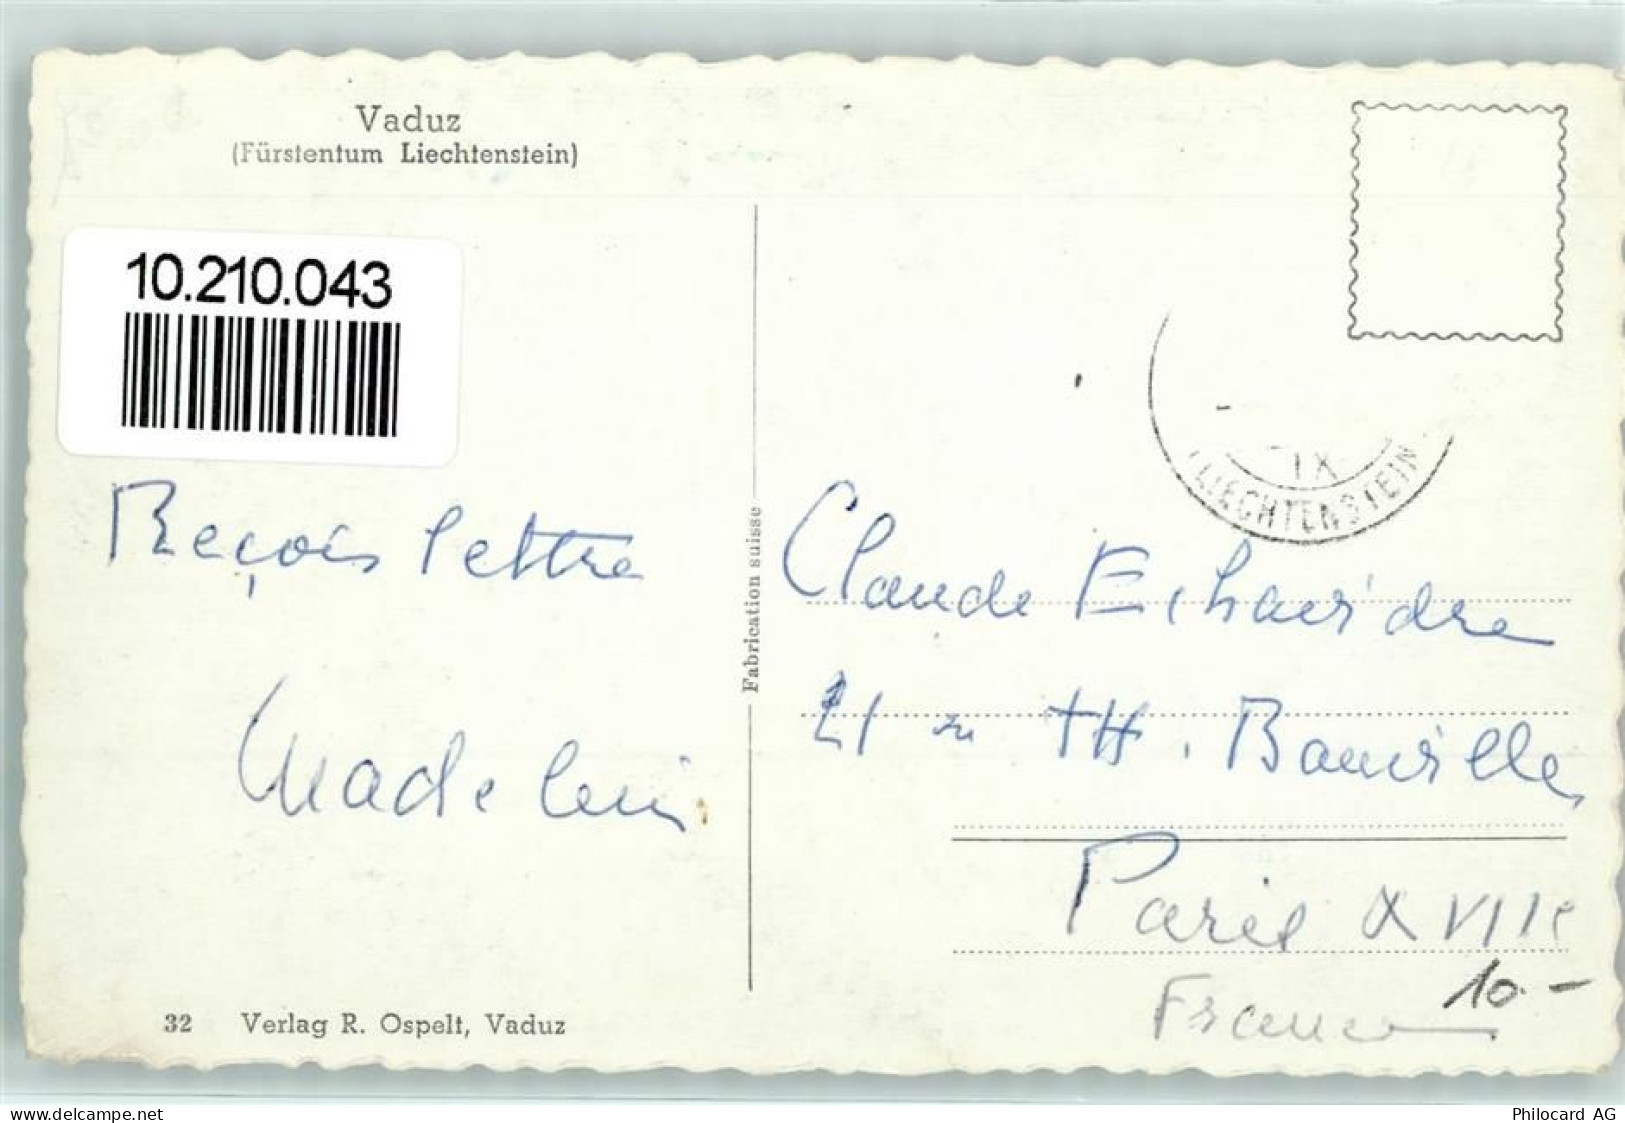 Vaduz
(Fürstentum Liechtenstein)
10.210.043
Reçois lettre
Madelein
32 Verlag R. Ospelt, Vaduz
Fabrication suisse
IX
LIECHTENSTEIN
Claude
21 TH. Banville
Paris XVIIe
France
10.-
www.delcampe.net
Philocard AG